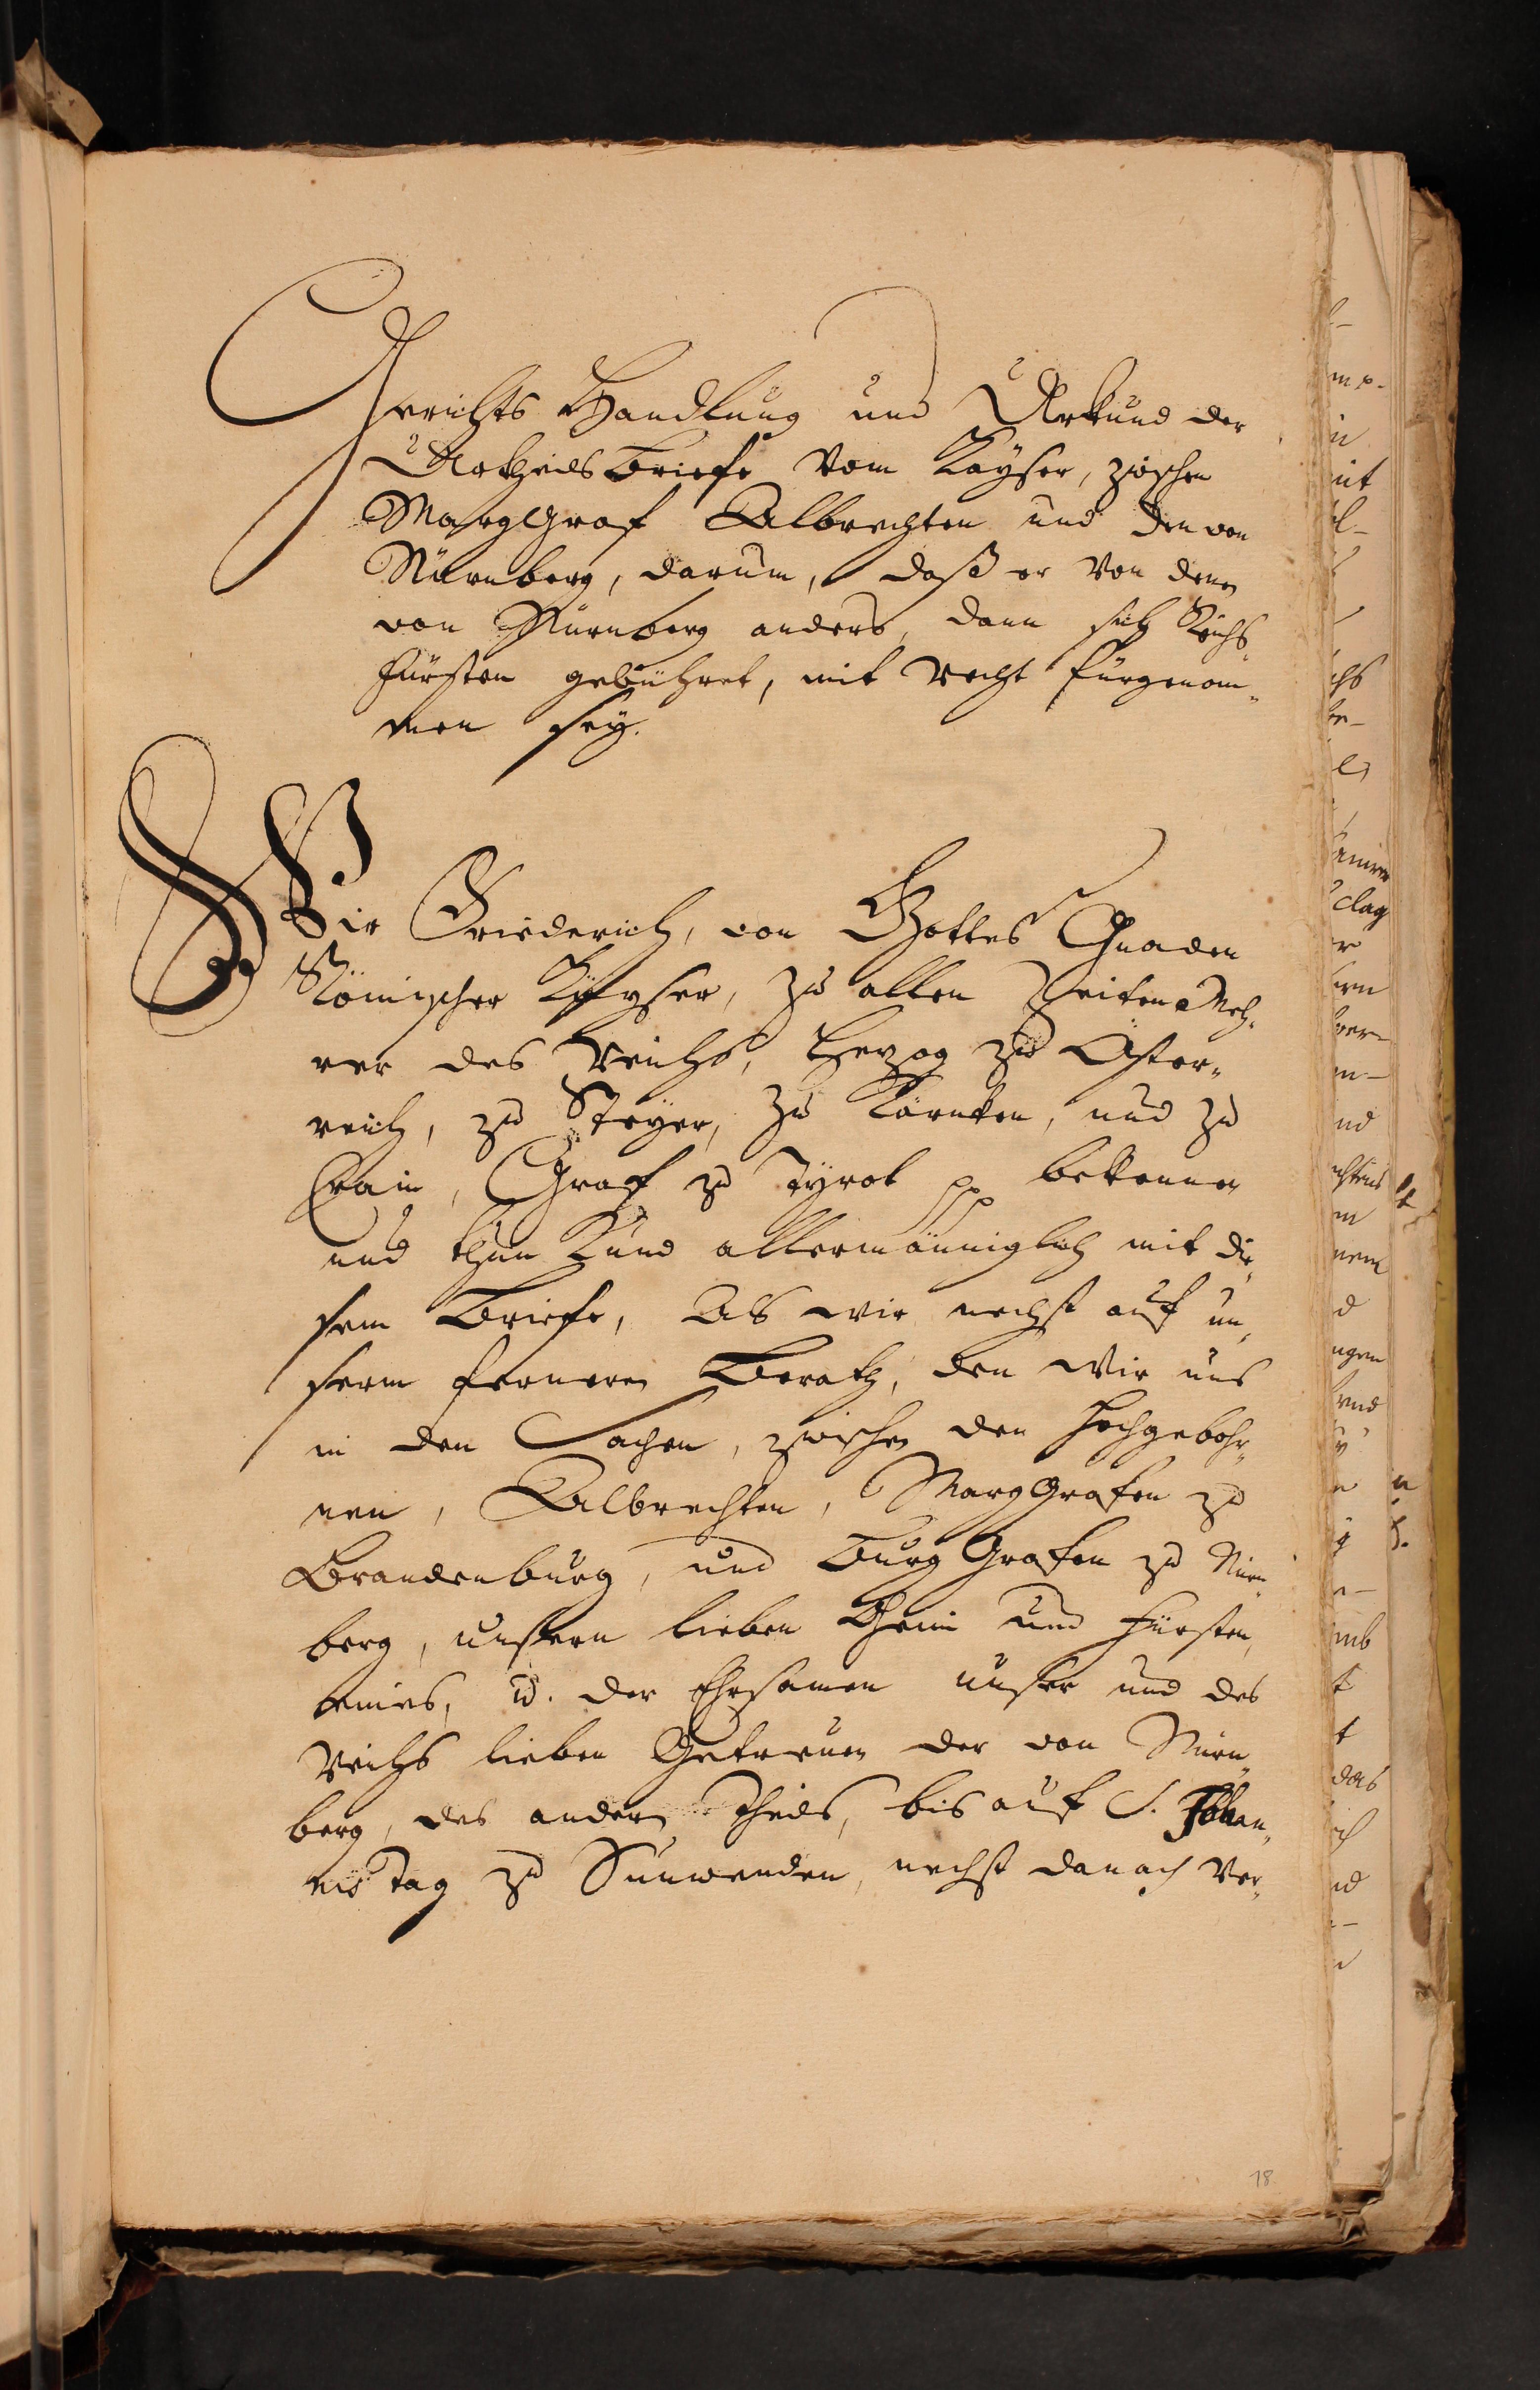 Gerichts Handlung und Urkund der
Urtheils Briefe vom Kayser, zwischen
Marggraf Albrechten und den von
Nürnberg, darum, daß er von denen
von Nürnberg anders, dann sich Reichs-
Fürsten gebühret, mit recht fürgenom-
men sey.
Wir Friederich, von Gottes Gnaden
Römischer Kayser, zu allen Zeiten Meh-
rer des Reichs, Herzog zu Öster-
reich, zu Steyer, zu Kärnten, und zu
Crain, Graf zu Tyrol ppp bekennen
und thun Kund allermänniglich mit die-
sem Briefe, Als wir nechst auf un-
serm fernern Berath, den wir uns
in den Sachen, zwischen den Hochgebohr-
nen, Albrechten, Marggrafen zu
Brandenburg, und Burg Grafen zu Nürn-
berg, unsern lieben Oheim und Fürsten,
eines, u. der Ehrsamen unser und des
Reichs lieben Getreuen der von Nürn-
berg, des andern Theils, bis auf S. Johan-
nis Tag zu Sunwenden, nechst danach ver-
18